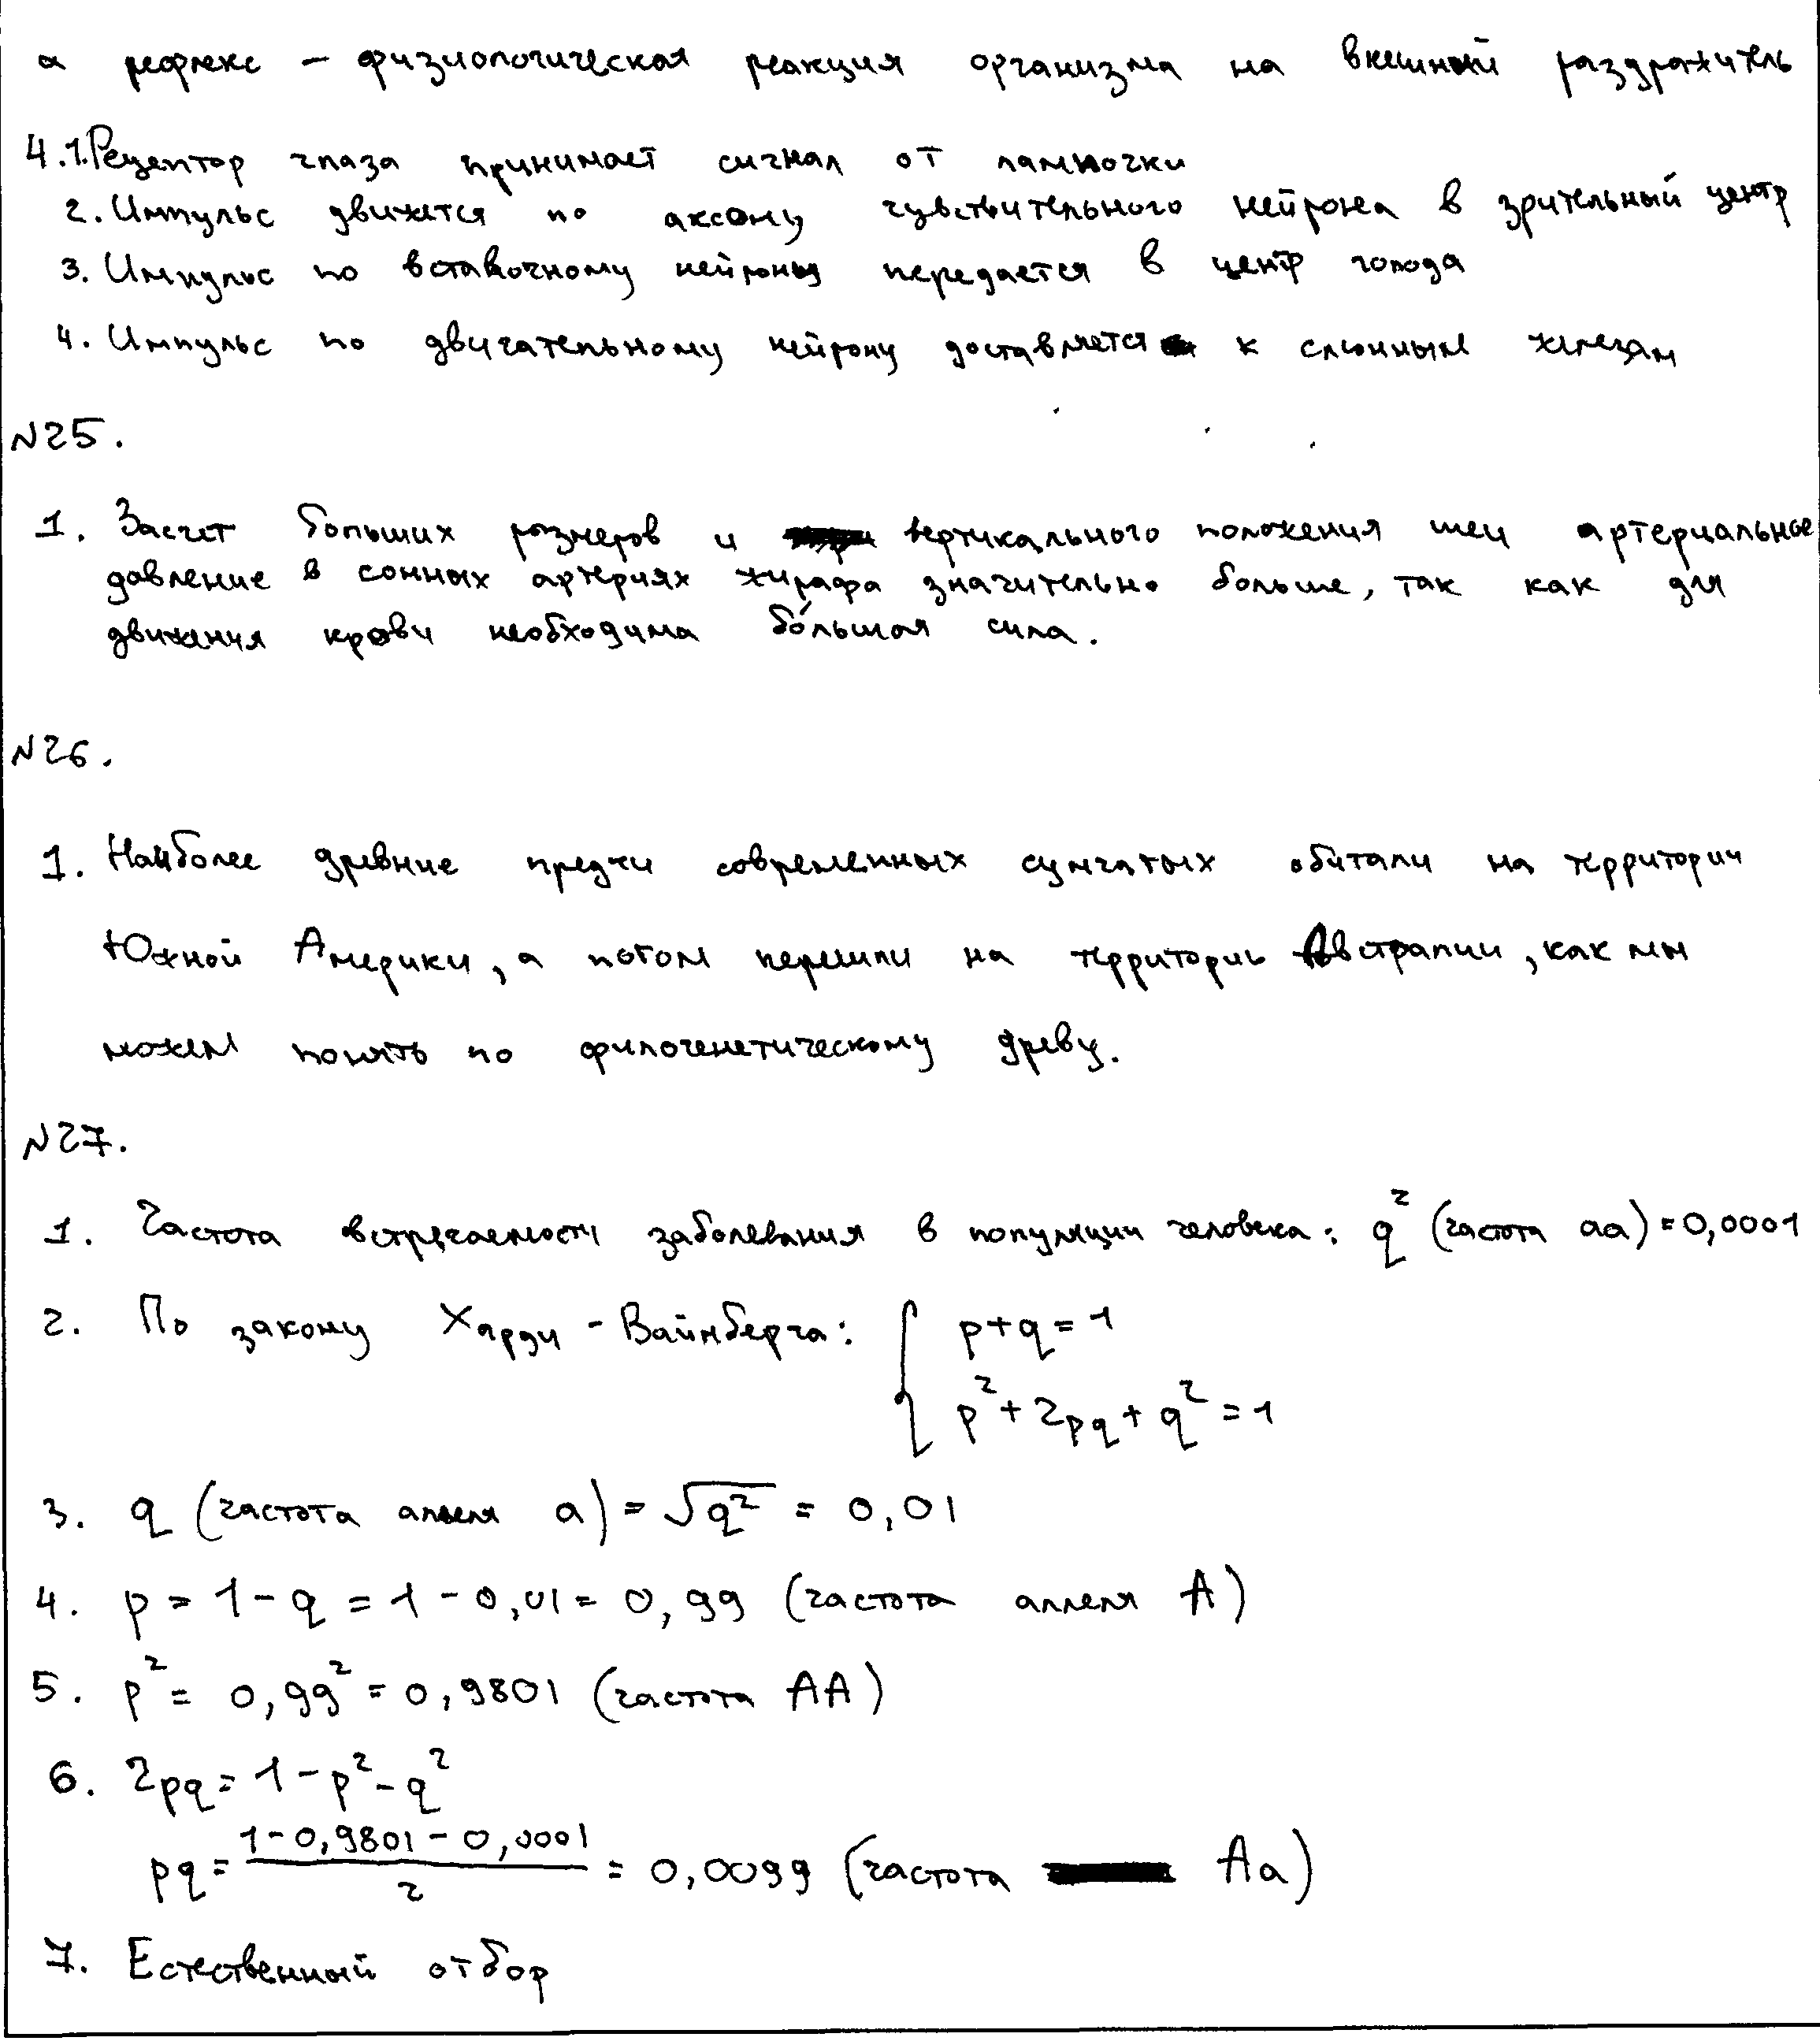 а рефлекс – физиологическая реакция организма на внешний раздражитель
4.1.Рецептор глаза принимает сигнал от лампочки
2. Импульс движется по аксону чувствительного нейрона в зрительный центр
3. Импульс по вставочному нейрону передается в центр голода
4. Импульс по двигательному нейрону доставляется к слюнным железам
N25.
1. Засчет больших размеров и вертикального положения шеи артериальное
давление в сонных артериях жирафа значительно больше, так как для
движения крови необходима бо́льшая сила.
N26.
1. Наиболее древние предки современных сумчатых обитали на территории
Южной Америки, а потом перешли на территорию Австралии, как мы
можем понять по филогенетическому древу.
N27.
1. Частота встречаемости заболевания в популяции человека: q² (частота aa) = 0,0001
2. По закону Харди - Вайнберга: { p+q=1
p²+2pq+q²=1
3. q (частота аллеля a) = √q² = 0,01
4. p = 1-q = 1-0,01 = 0,99 (частота аллеля A)
5. p² = 0,99² = 0,9801 (частота AA)
6. 2pq = 1-p²-q²
pq = (1-0,9801-0,0001)/2 = 0,0099 (частота Aa)
7. Естественный отбор